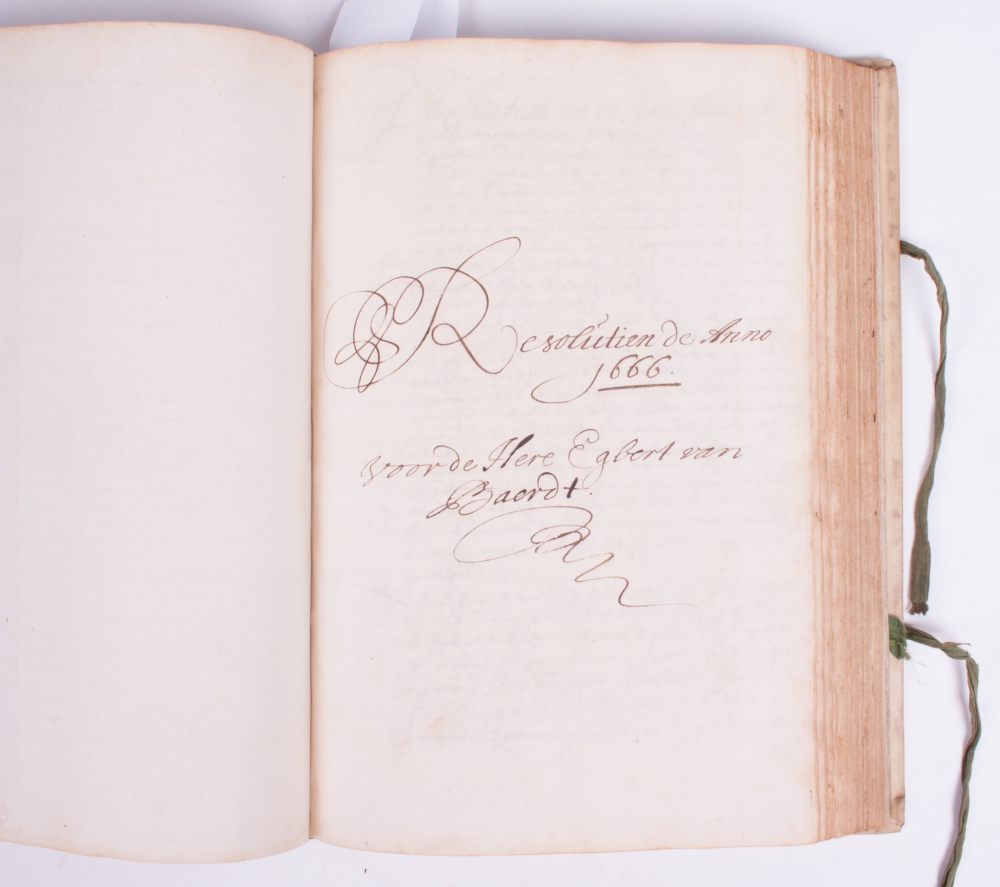 Resolutien de Anno
1666.
voor de Here Egbert van
Baerdt.